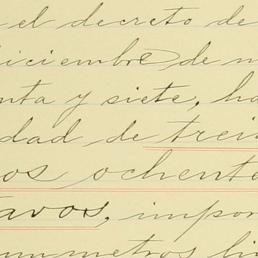 el decreto de
diciembre de m
nta y siete, ha
dad de trein
os ochenta
tavos, impor
metros li